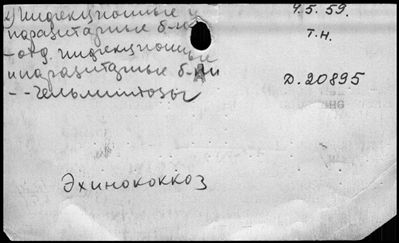 к) Инфекционные и
паразитарные б-ни
- отд. инфекционные
и паразитарные б-ни
- - Гельминтозы
4.5.59.
т.н.
Д. 20895
Эхинококкоз